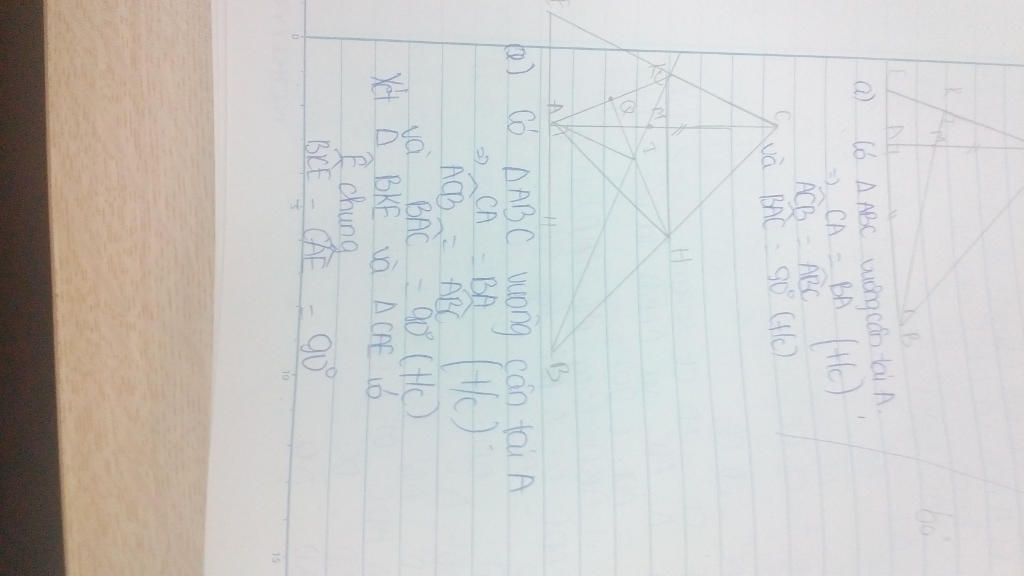 E
K
A
M
B
a) Có Δ ABC vuông cân tại A.
⇒ CA = BA (t/c)
ACB = ABC
và BAC = 90° (t/c)
60°
C
K
M
Q
I
E
A
H
B
a) Có Δ ABC vuông cân tại A
⇒ CA = BA (t/c)
ACB = ABC
và BAC = 90° (t/c)
Xét Δ BKE và Δ CAE có
E chung
BKE = CAE = 90°
0
5
10
15